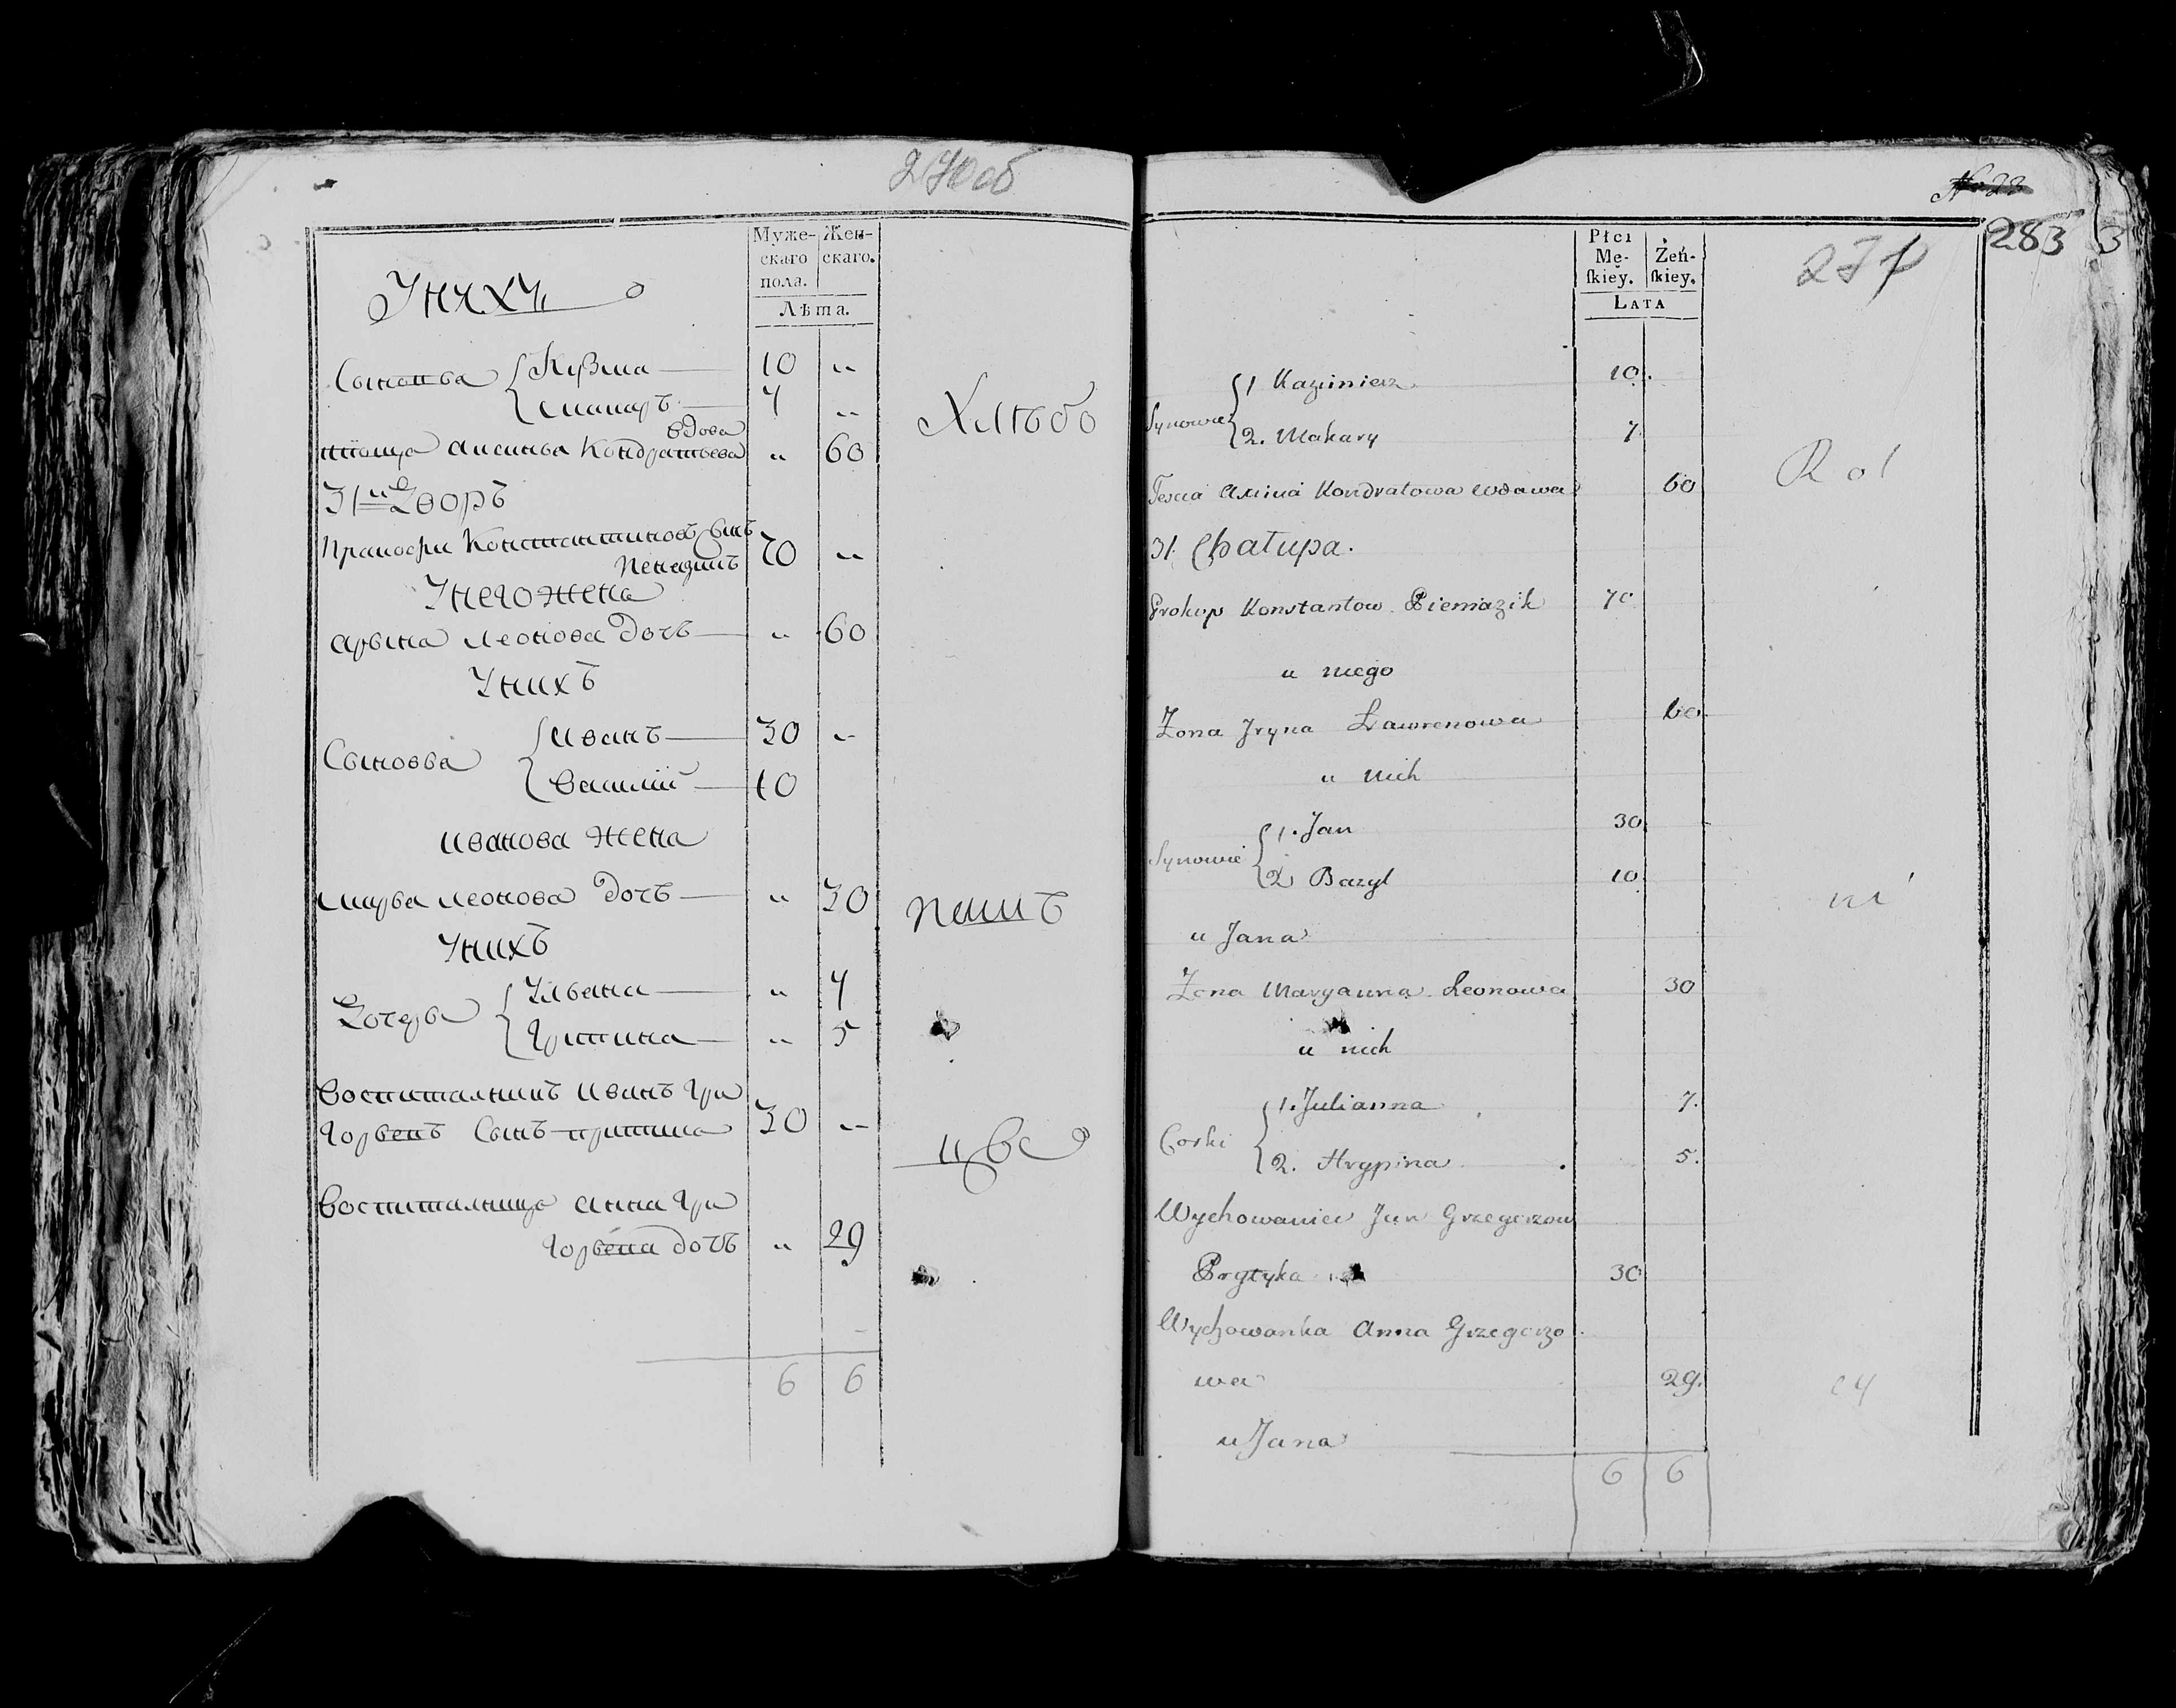 270 об
Муже- Жен-
скаго скаго.
пола.
Лѣта.
Унихъ
Сыновья Кузма 10 „
Макаръ 7 „
вдова
тіоща Аксинья Кондратьева „ 60
31й Дворъ
Прокофи Константиновъ Сынъ
70 „
Унего жена
Арына Леонова дочь „ 60
Унихъ
Сыновья Иванъ 30 „
Василій 10
Иванова жена
Марья Леонова дочь „ 30
Унихъ
Дочерья Ульяна „ 7
Грипина „ 5
Воспитанникъ Иванъ Гри
горьевъ Сынъ 30 „
Воспитанница Анна Гри
горьева дочь „ 29
6 6
Хлѣбо
пашъ
цѣвъ
283
271
Płci
Mę- Żeń-
ſkiey. ſkiey.
LATA
Synowie 1 Kazimierz 10.
2. Makary 7
Tescia Axinia Kondratowa wdowa 60
31. Chałupa.
Prokop Konstantow Pieniazik 70
u niego
Żona Jryna Ławrenowa 60
u nich
Synowie 1. Jan 30
2 Bazyl 10
u Jana
Żona Maryanna Leonowa 30
u nich
Corki 1. Julianna 7.
2. Hrypina 5.
Wychowaniec Jan Grzegorzow
Prytyka 30
Wychowanka Anna Grzegorzo
wa 29.
u Jana
6 6
Rol
ni
cy